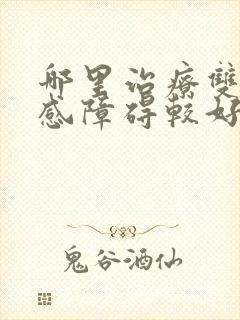 哪里治療雙
感障碍較好
鬼谷酒仙